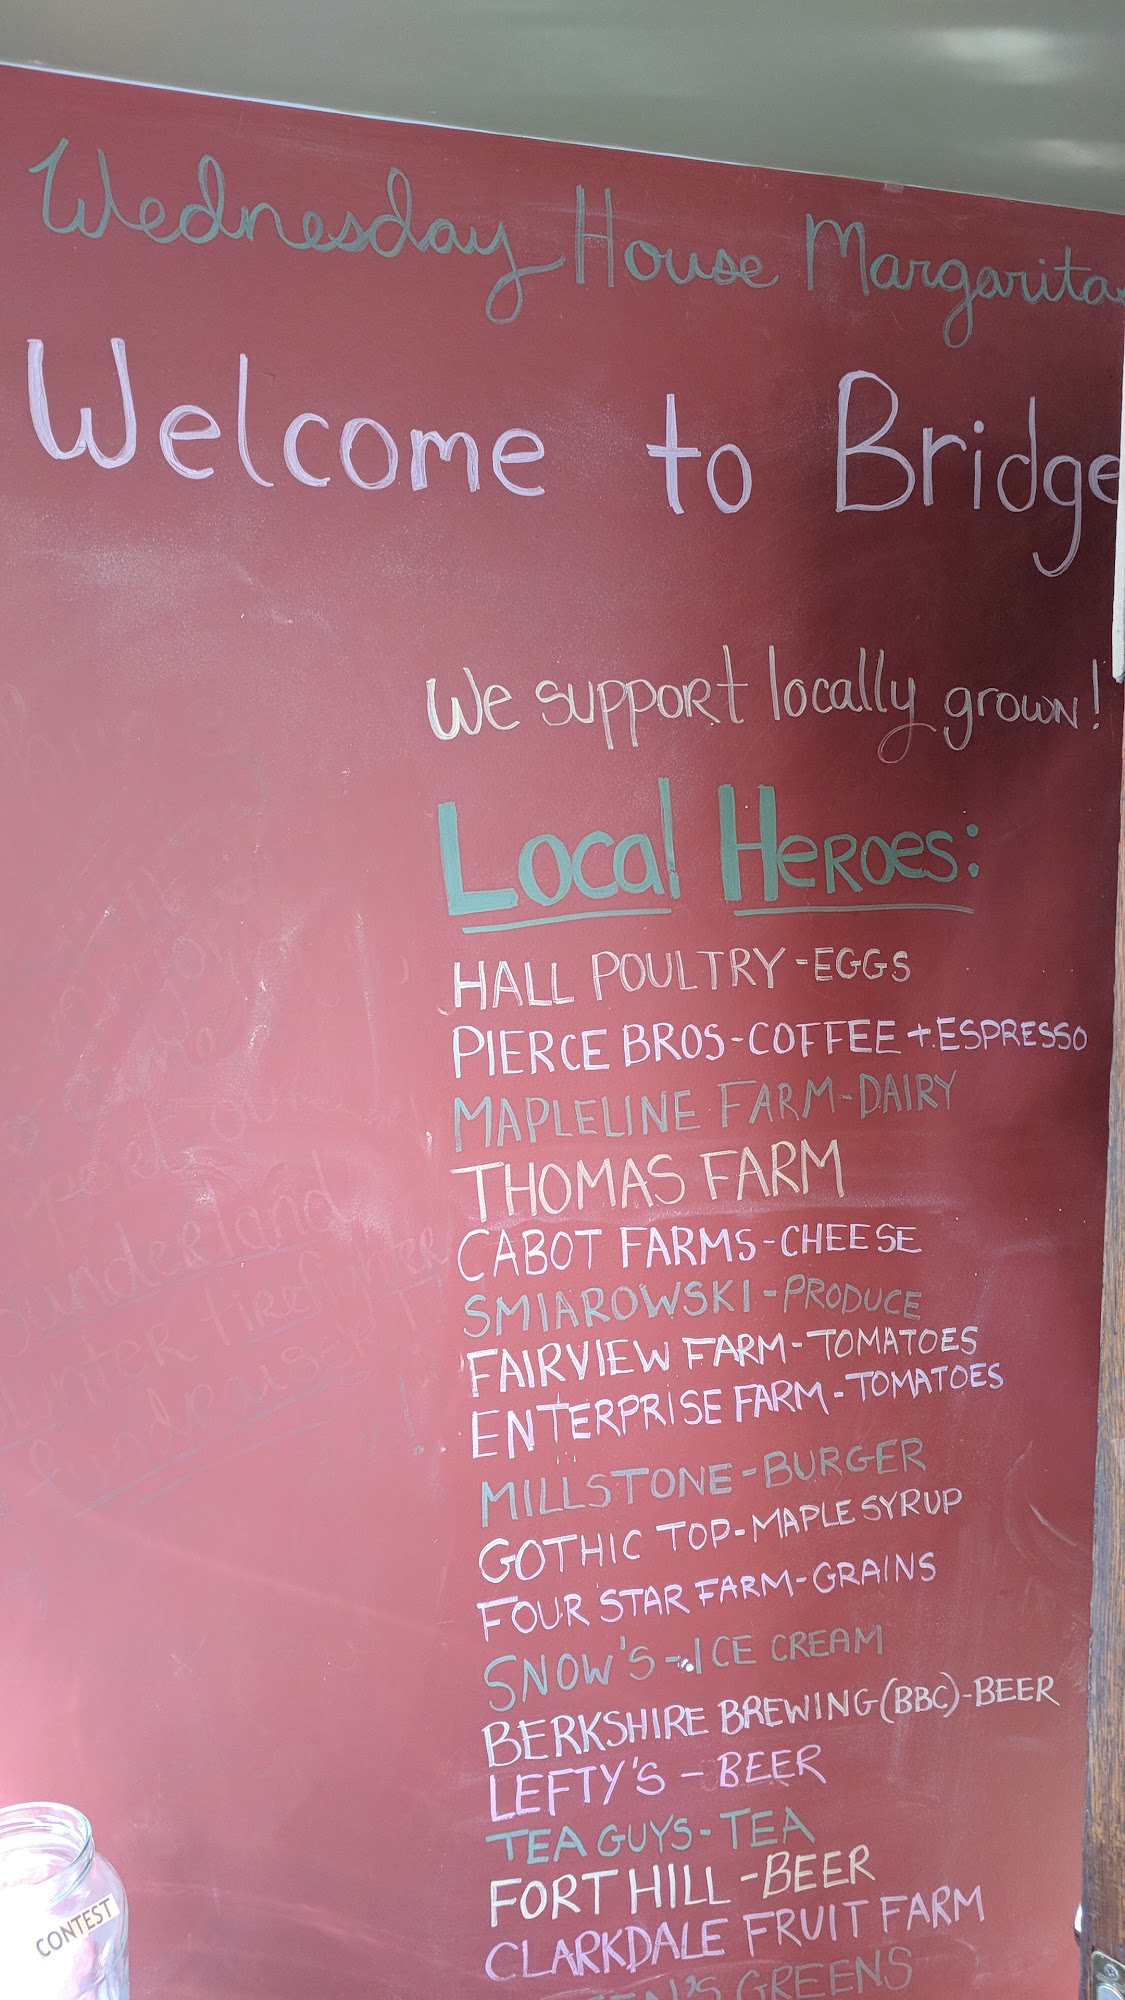 Wednesday House Margarita
Welcome to Bridge
We support locally grown!
Local Heroes:
HALL POULTRY - EGGS
PIERCE BROS - COFFEE + ESPRESSO
MAPLELINE FARM - DAIRY
THOMAS FARM
CABOT FARMS - CHEESE
SMIAROWSKI - PRODUCE
FAIRVIEW FARM - TOMATOES
ENTERPRISE FARM - TOMATOES
MILLSTONE - BURGER
GOTHIC TOP - MAPLE SYRUP
FOUR STAR FARM - GRAINS
SNOW'S - ICE CREAM
BERKSHIRE BREWING (BBC) - BEER
LEFTY'S - BEER
TEA GUYS - TEA
FORT HILL - BEER
CLARKDALE FRUIT FARM
GREENS
CONTEST